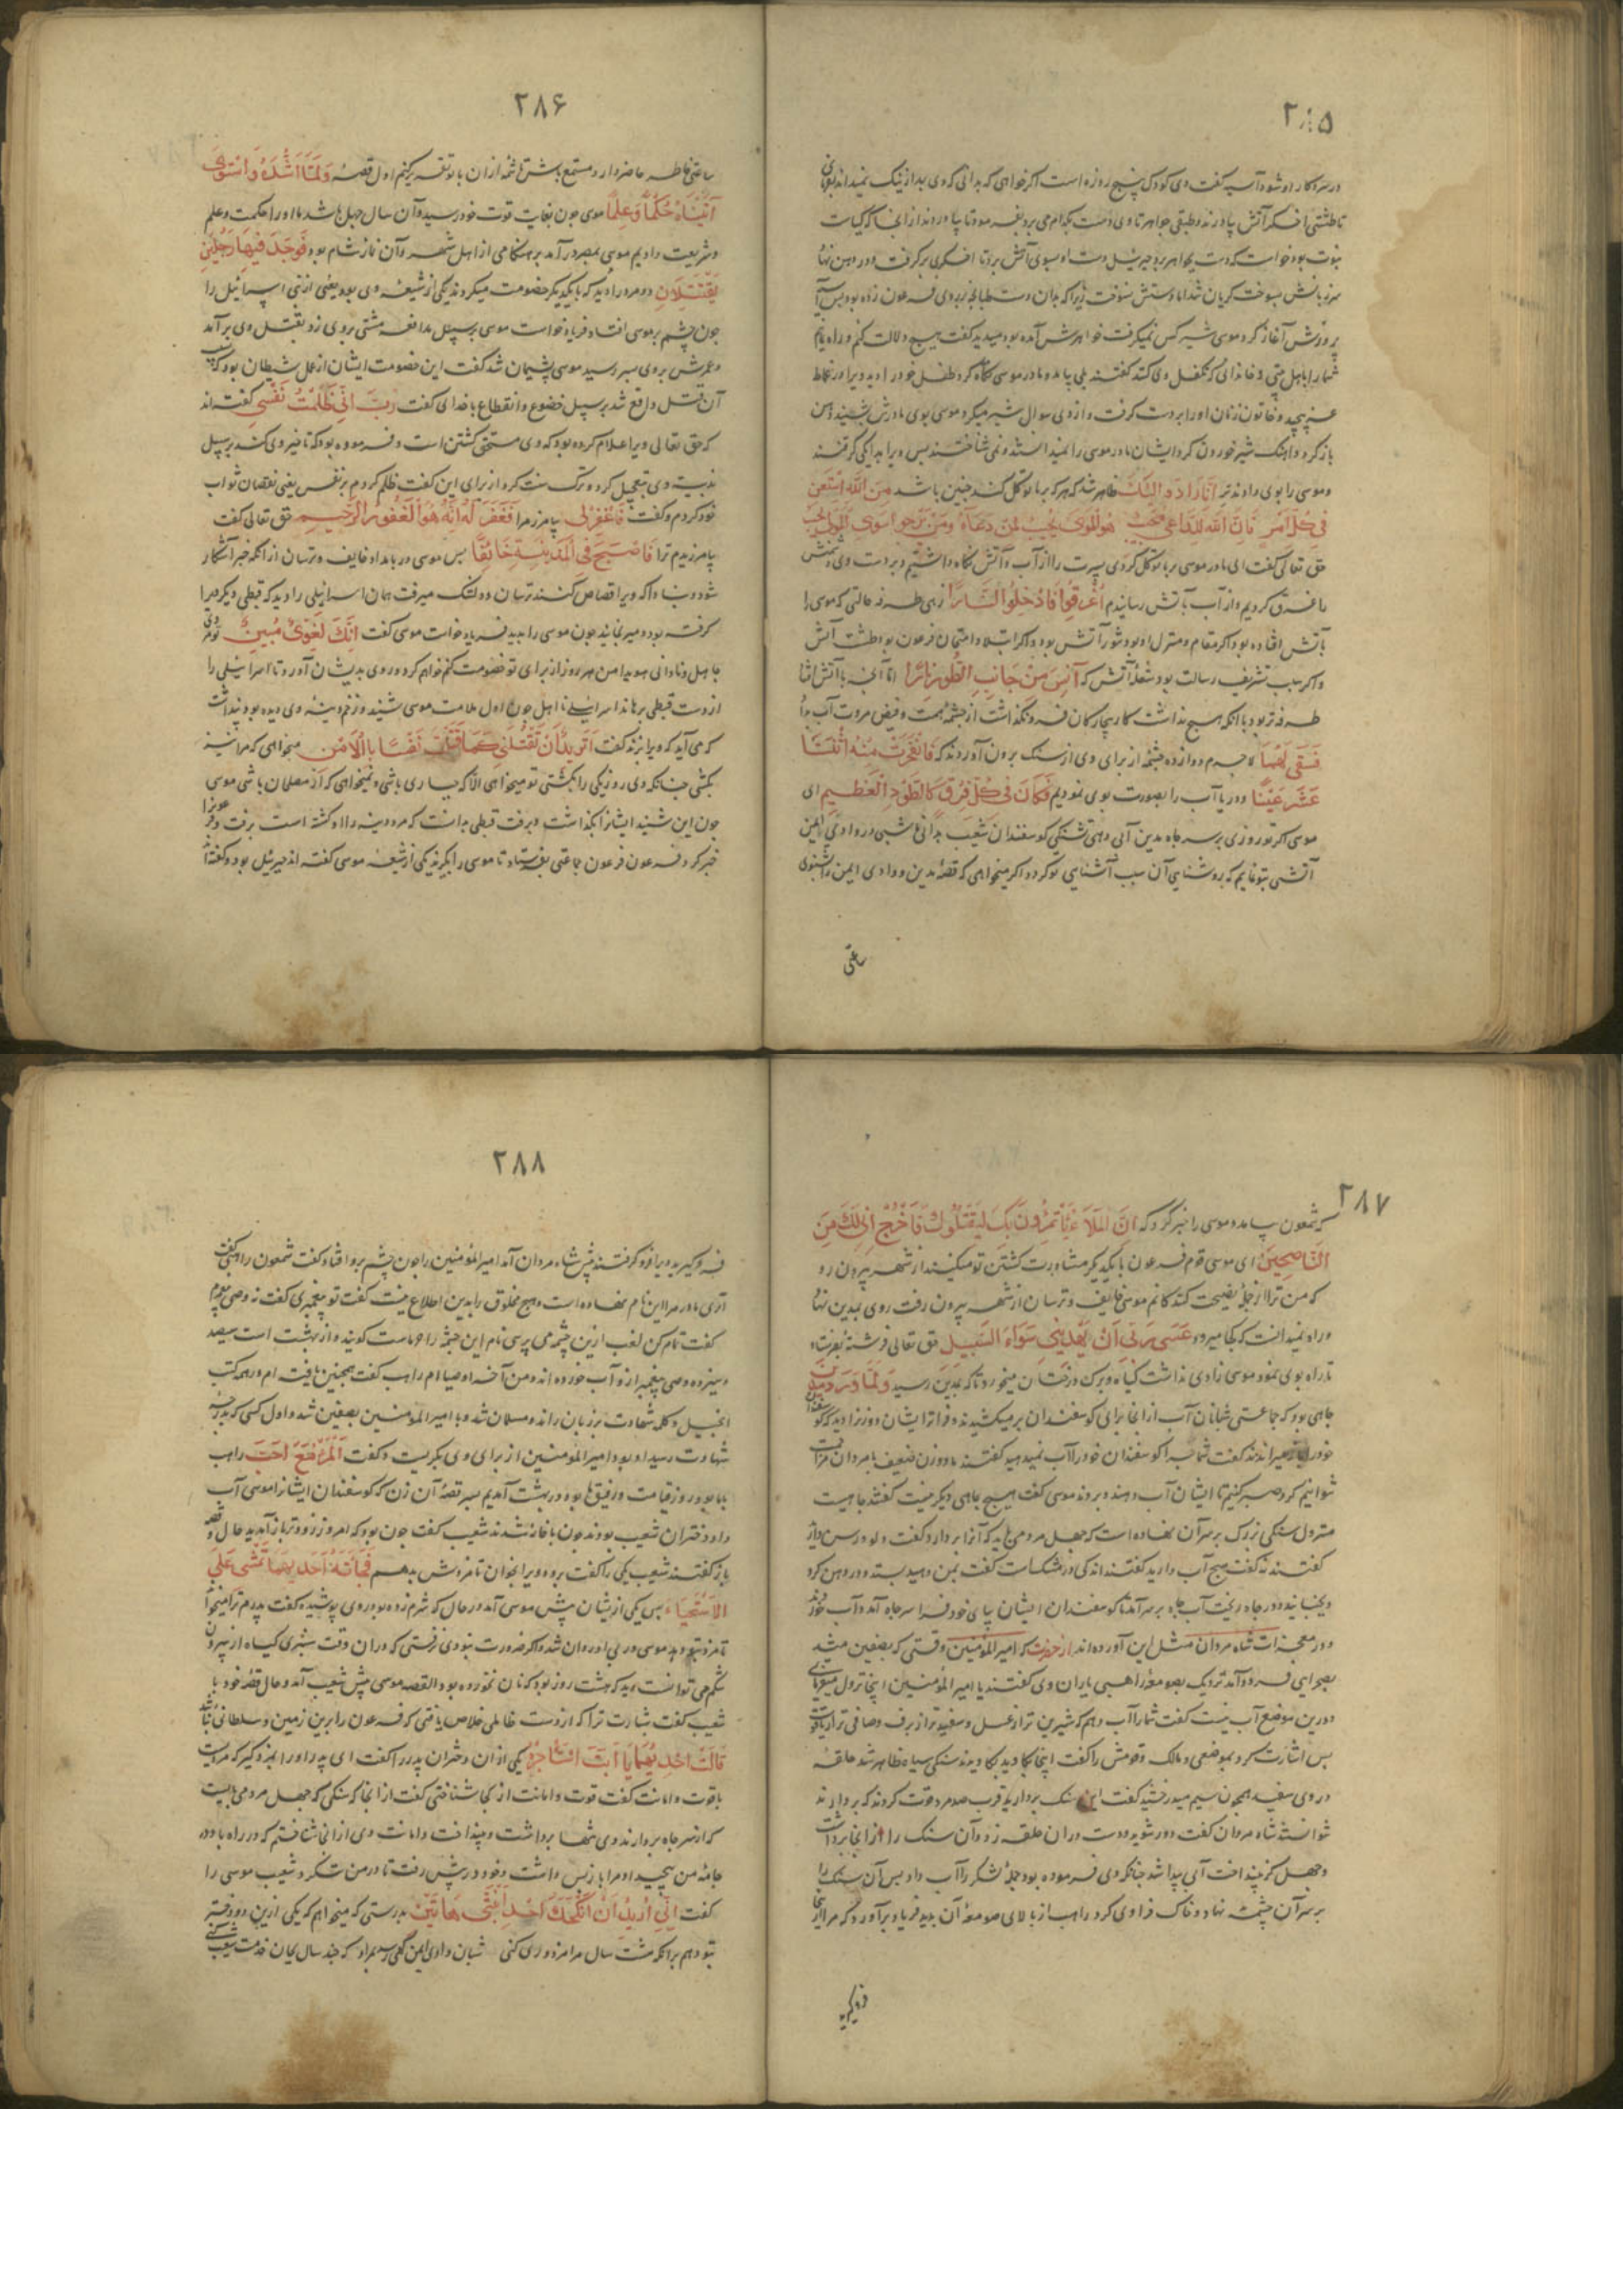 ۲۸۵
در سر و کار او شود آسیه گفت وی کودک پنج روزه است اگر خواهی که بدانی که وی بد از نیک نمیداند بفرمای
تا طشتی اخکر آتش بیاورند و طبقی جواهر تا وی دست بکدام می برد
نبوت بود خواست که دست بجواهر برد جبرئیل دست او بسوی آتش برد تا اخکری برگرفت و در دهن نهاد
سر زبانش بسوخت گریان شد اما دستش نسوخت زیرا که بدان دست طبانچه بر روی فرعون زده بود پس آسیه
پرورش آغاز کرد موسی شیر کس نمیگرفت خواهرش آمده بود میدید گفت هیچ دلالت کنم و راه نمایم
شما را باهل بیتی و خاندانی که تکفل وی کند گفتند بلی بیامد و مادر موسی
و خاتون زنان او را بر دست گرفت و از وی سوال شیر میکرد موسی بوی مادرش بشنید دهن
باز کرد و آهنک شیر خوردن کرد ایشان مادر موسی را نمیدانستند و نمی شناختند پس ویرا بدایکی گرفتند
و موسی را بوی دادند تر اِنّا رَادُّوهُ اِلَیْكِ ظاهر شد که هر که بر ما توکل کند چنین باشد مَنِ اللّٰهَ اسْتَعَنْ
فِی كُلِّ اَمْرٍ فَاِنَّ اللّٰهَ لِلدَّاعِی مُجِیبٌ هُوَ الْمَوْلَی یُجِیبُ لِمَنْ دَعَاهُ وَمَنْ یَرْجُو سِوَی الْمَوْلَی یَخِیبُ
حق تعالی گفت ای مادر موسی بر ما توکل کردی پسرت را از آب و آتش نگاه داشتیم و بر دست وی دشمنش
را غرق کردیم و از آب بآتش رسانیدیم اُغْرِقُوا فَاُدْخِلُوا نَارًا زهی طرفه حالتی که موسی را
بآتش افتاده بود اگر مقام و منزل او بود تنور آتش بود و اگر ابتلا و امتحان فرعون بود طشت آتش
و اگر سبب تشریف رسالت بود شعله آتش که آنَسَ مِنْ جَانِبِ الطُّورِ نَارًا
طرفه تر بود با آنکه هیچ نداشت کار بیچارگان فرو نگذاشت از چشمه همت و فیض مروت آب داد
فَسَقَی لَهُمَا لاجرم دوازده چشمه از برای وی از سنک برون آوردند که فَانْفَجَرَتْ مِنْهُ اثْنَتَا
عَشْرَةَ عَیْنًا و در یا آب را بصورت بوی نمودیم فَكَانَ كُلُّ فِرْقٍ كَالطَّوْدِ الْعَظِیمِ ای
موسی اگر تو روزی بر سر چاه مدین آبی دهی تشنکی گوسفندان شعیب بدانی شبی در وادی ایمن
آتشی بتو نمایم که روشنایی آن سبب آشنایی تو گردد اگر میخواهی که قصه مدین و وادی ایمن را بشنوی
ساعتی
۲۸۶
ساعتی خاطر حاضر دار و مستمع باش تا شمه از آن با تو تقریر کنیم اول قصه وَلَمَّا بَلَغَ اَشُدَّهُ وَاسْتَوَی
آتَیْنَاهُ حُكْمًا وَعِلْمًا موسی چون بغایت قوت خود رسید و آن سال چهل باشد ما او را حکمت و علم
و شریعت دادیم موسی بمصر درآمد بر هنکامی از اهل شهر و آن نماز شام بود فَوَجَدَ فِیهَا رَجُلَیْنِ
یَقْتَتِلَانِ دو مرد را دید که با یکدیکر خصومت میکردند یکی از شیعه وی بود یعنی از بنی اسرائیل را
چون چشم بر موسی افتاد فریاد خواست موسی بر سبیل مدافعه مشتی بر وی زد بقتل وی برآمد
و عمرش بر وی بسر رسید موسی پشیمان شد گفت این خصومت ایشان از عمل شیطان بود که سبب
آن قتل واقع شد بر سبیل خضوع و انقطاع با خدای گفت رَبِّ اِنِّی ظَلَمْتُ نَفْسِی گفته اند
که حق تعالی ویرا اعلام کرده بود که وی مستحق کشتن است و فرموده بود که تاخیر وی کند بر سبیل
ندبیت وی تعجیل کرد و ترک سنت کرد از برای این گفت ظلم کردم بر نفس یعنی نقصان ثواب
خود کردم و گفت فَاغْفِرْ لِی بیامرز مرا فَغَفَرَ لَهُ اِنَّهُ هُوَ الْغَفُورُ الرَّحِیمُ حق تعالی گفت
بیامرزیدم ترا فَاَصْبَحَ فِی الْمَدِینَةِ خَائِفًا پس موسی در بامداد خایف و ترسان از آنکه خبر آشکار
شود و مبادا که ویرا قصاص کنند ترسان و دلتنک میرفت همان اسرائیلی را دید که قبطی دیکر ویرا
گرفته بود و میرنجانید چون موسی را بدید فریاد خواست موسی گفت اِنَّكَ لَغَوِیٌّ مُبِینٌ تو مردی
جاهل و نادانی هویدا من هر روز از برای تو خصومت کنم خواهم کرد و روی بدیشان آورد تا اسرائیلی را
از دست قبطی برهاند اسرائیلی نااهل چون اول ملامت موسی شنید و زخم دینه وی دیده بود پنداشت
که می آید که ویرا بزند گفت اَتُرِیدُ اَنْ تَقْتُلَنِی كَمَا قَتَلْتَ نَفْسًا بِالْاَمْسِ میخواهی که مرا نیز
بکشی چنانکه وی روز یکی را بکشتی تو میخواهی الا که جباری باشی و نمیخواهی که از مصلحان باشی موسی
چون این شنید ایشانرا بگذاشت و برفت قبطی بدانست که مرد دینه را او کشته است برفت و فرعونرا
خبر کرد فرعون جماعتی بفرستاد تا موسی را بگیرند یکی از شیعه موسی گفته اند جبرئیل بود و گفته اند
۲۸۷
که شمعون بیامد و موسی را خبر کرد که اِنَّ الْمَلَأَ یَأْتَمِرُونَ بِكَ لِیَقْتُلُوكَ فَاخْرُجْ اِنِّی لَكَ مِنَ
النَّاصِحِینَ ای موسی قوم فرعون با یکدیکر مشاورت کشتن تو میکنند از شهر بیرون رو
که من ترا از جمله نصیحت کنندکانم موسی خایف و ترسان از شهر بیرون رفت روی بمدین نهاد
و راه نمیدانست که کجا میرود عَسَی رَبِّی اَنْ یَهْدِیَنِی سَوَاءَ السَّبِیلِ حق تعالی فرشته بفرستاد
تا راه بوی نمود موسی زادی نداشت گیاه و برک درختان میخورد تا که بمدین رسید وَلَمَّا وَرَدَ مَاءَ مَدْیَنَ
چاهی بود که جماعتی شبانان آب از آنجا برای گوسفندان برمیکشیدند و فراتر ایشان دو زن را دید که گوسفندان
خود را باز میراندند گفت شما چرا گوسفندان خود را آب نمیدهید گفتند ما دو زن ضعیفیم با مردان مزاحمت
نتوانیم کرد صبر کنیم تا ایشان آب دهند و بروند موسی گفت هیچ چاهی دیکر نیست گفتند چاهیست
سنکی بزرک بر سر آن نهاده است که چهل مرد می باید که آنرا بردارد گفت دلو و رسن دارید
گفتند نه گفت هیچ آب دارید گفتند اندکی در مشک ماست گفت بمن دهید بستد و در دهن کرد
و بجنبانید و در چاه ریخت آب چاه بر سر آمد تا گوسفندان ایشان بپای خود فرا سر چاه آمد و آب خوردند
و در معجزات شاه مردان مثل این آورده اند از حضرت که امیر المؤمنین وقتی که بصفین میشد
بصحرایی فرود آمد نزدیک بصومعه راهبی یاران وی گفتند یا امیر المؤمنین اینجا نزول میفرمایی
و درین موضع آب نیست گفت شما را آب دهم که شیرین تر از عسل و سفیدتر از برف و صافی تر از یاقوت
پس اشارت کرد بموضعی و مالک و قومش را گفت اینجا بکاوید بکاویدند سنکی سیاه ظاهر شد حلقه
در وی سفید همچون سیم میدرخشید گفت این سنک بردارید قرب صد مرد قوت کردند که بردارند
نتوانستند شاه مردان گفت دور شوید و دست در آن حلقه زد و آن سنک را از آنجا برداشت
و چهل گز بینداخت آبی پیدا شد چنانکه وی فرموده بود جمله لشکر را آب داد پس آن سنک را
بر سر آن چشمه نهاد و خاک فرا وی کرد راهب از بالای صومعه آن بدید فریاد برآورد که مرا از اینجا
فرو گیرید
۲۸۸
فرو گیرید ویرا فرو گرفتند پیش شاه مردان آمد امیر المؤمنین را چون چشم برو افتاد گفت شمعون راهب گفت
آری مادر مرا این نام نهاده است و هیچ مخلوق را بدین اطلاع نیست گفت تو پیغمبری گفت نه وصی پیغمبرم
گفت تمام کن لقب ازین چشمه می پرسی نام این چشمه راحوماست گویند و از بهشت است سیصد
و سیزده وصی پیغمبر ازو آب خورده اند و من آخر اوصیاام راهب گفت همچنین یافته ام در همه کتب
انجیل و کلمه شهادت بر زبان راند و مسلمان شد و با امیر المؤمنین بصفین شد و اول کسی که بدرجه
شهادت رسید او بود امیر المؤمنین از برای وی بگریست و گفت اَلْمَرْءُ مَعَ مَنْ اَحَبَّ راهب
با ما بود روز قیامت و رفیق ما بود در بهشت آمدیم بسر قصه آن زن که گوسفندان ایشانرا موسی آب
داد دختران شعیب بودند چون با خانه شدند شعیب گفت چون بود که امروز زودتر باز آمدید حال و قصه
باز گفتند شعیب یکی را گفت برو و ویرا بخوان تا مزدوش بدهم فَجَاءَتْهُ اِحْدَاهُمَا تَمْشِی عَلَی
الْاِسْتِحْیَاءِ پس یکی از ایشان پیش موسی آمد در حال که شرم زده بود و روی پوشیده گفت پدرم ترا میخواند
تا مزد بتو دهد موسی در پی او روان شد و اگر ضرورت نبودی نرفتی که در آن وقت سبزی گیاه از بیرون
شکم می توانست دید که هشت روز بود که نان نخورده بود القصه موسی پیش شعیب آمد و حال قصه خود با
شعیب گفت بشارت ترا که از دست ظالمی خلاص یافتی که فرعون را برین زمین و سلطانی نباشد
قَالَتْ اِحْدَاهُمَا یَا اَبَتِ اسْتَأْجِرْهُ یکی از آن دختران پدر را گفت ای پدر او را بمزد گیر که مردیست
باقوت و امانت گفت قوت و امانت از کجا شناختی گفت از آنجا که سنکی که چهل مرد می بایست
که از سر چاه بردارند وی تنها برداشت و بینداخت و امانت وی از آن شناختم که در راه باد در
جامه من پیچید او مرا باز پس داشت و خود در پیش رفت تا در من ننگرد شعیب موسی را
گفت اِنِّی اُرِیدُ اَنْ اُنْكِحَكَ اِحْدَی ابْنَتَیَّ هَاتَیْنِ بدرستی که میخواهم که یکی ازین دو دختر
بتو دهم بر آنکه هشت سال مرا مزدوری کنی شبان وادی ایمن گهی رسد بمراد که چند سال بجان خدمت شعیب کند